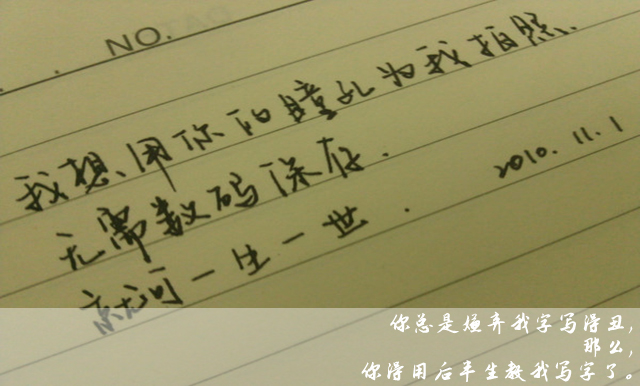 NO.
我想用你的瞳孔为我拍照.
无需数码保存.
就可一生一世.
2010.11.1
你总是嫌弃我字写得丑,
那么,
你得用后半生教我写字了。